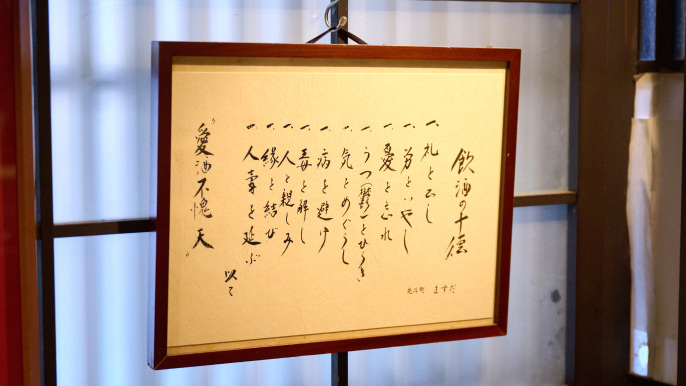 飲酒の十徳
一、礼を正し
一、労をいやし
一、憂を忘れ
一、うつ(鬱)をひらき
一、気をめぐらし
一、病を避け
一、毒を解し
一、人と親しみ
一、縁を結び
一、人寿を延ぶ
以て
"愛酒不愧天"
先斗町 ますだ